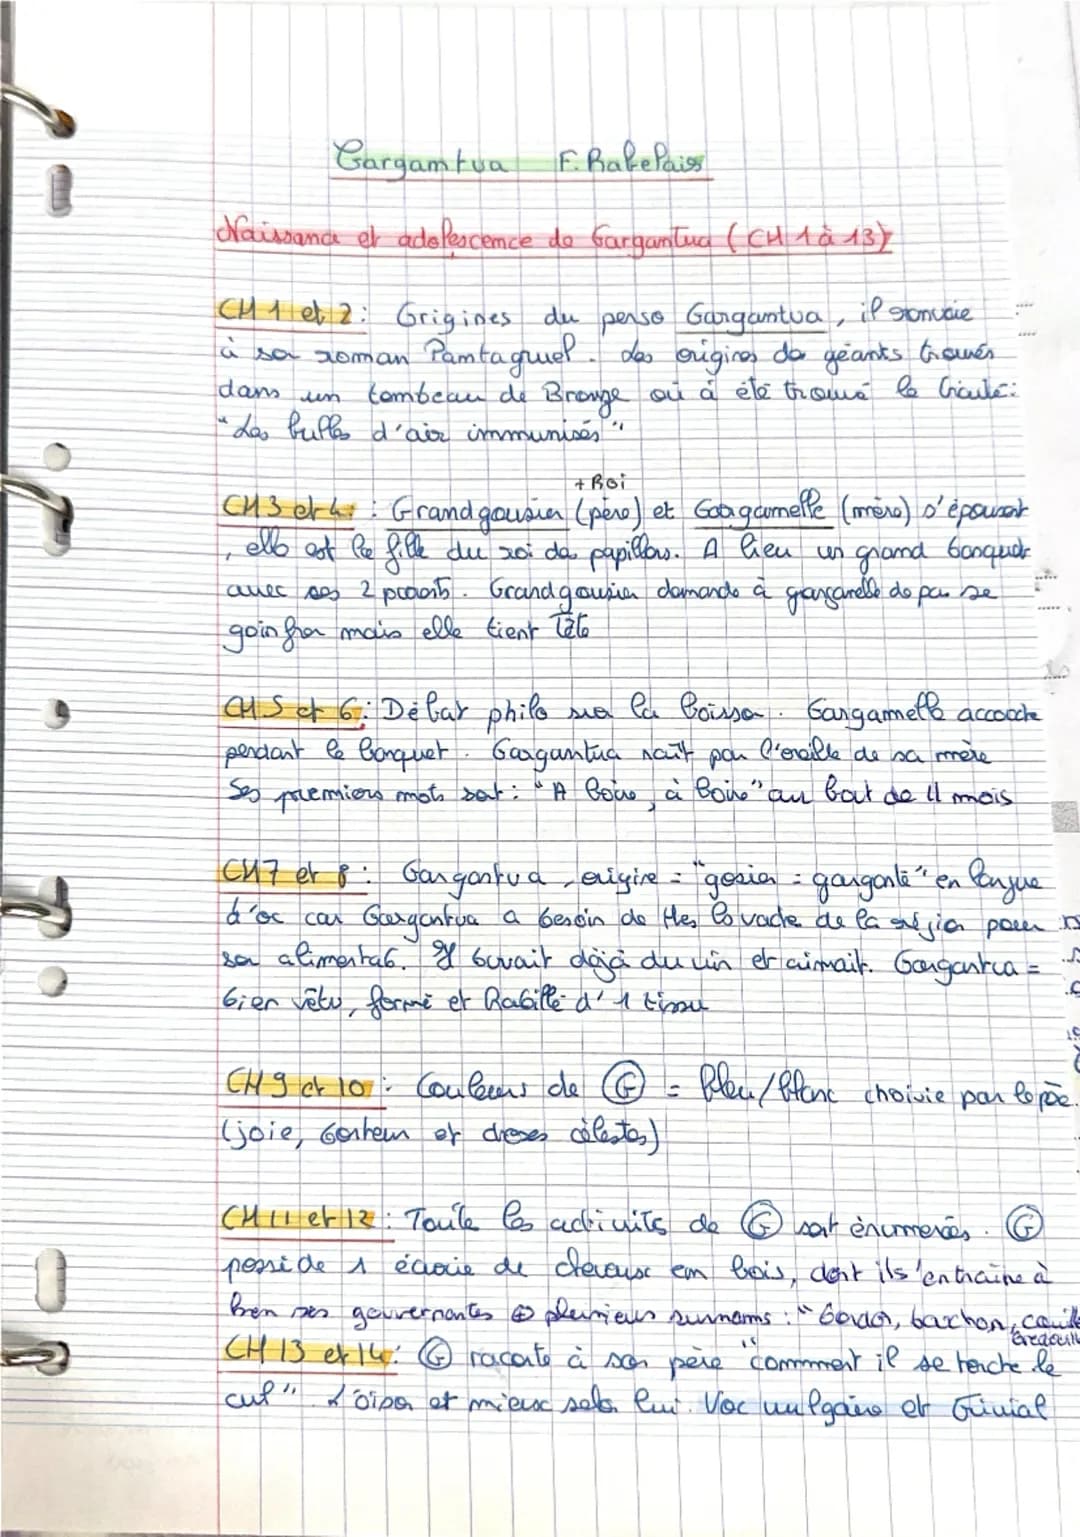 Gargantua F. Rabelais
Naissance et adolescence de Gargantua (CH 1 à 13)
CH 1 et 2 : Origines du perso Gargantua, il renvoie
à sa roman Pantagruel. Les origines de géants trouvés
dans un tombeau de Bronze où à été trouvé le traité :
"Les bulles d'air immunisés"
+ Roi
CH 3 et 4 : Grandgousier (père) et Gargamelle (mère) s'épousent
, elle est la fille du roi des papillons. A lieu un grand banquet
avec ses 2 parents. Grandgousier demande à gargamelle de pas se
goinfrer mais elle tient tête
CH 5 et 6 : Débat philo sur la boisson. Gargamelle accouche
pendant le banquet. Gargantua naît par l'oreille de sa mère
Ses premiers mots sont : "A boire, à boire" au bout de 11 mois
CH 7 et 8 : Gargantua, origine = "gosier = gargante" en langue
d'oc car Gargantua a besoin de ttes les vache de la région pour
son alimenta°. Il buvait déjà du vin et aimait. Gargantua =
bien vêtu, formé et habillé d' 1 tissu
CH 9 et 10 : Couleurs de G = bleu/blanc choisie par le père.
(joie, bonheur et choses célestes)
CH 11 et 12 : Toute les activités de G sont énumérés. G
posside 1 écurie de chevaux en bois, dont il s'entraîne à
ses gouvernantes ⊕ plusieurs surnoms : "
CH 13 et 14 : G raconte à son père "comment il se torche le
cul". L'oison et mieux selon lui. Voc vulgaire et trivial